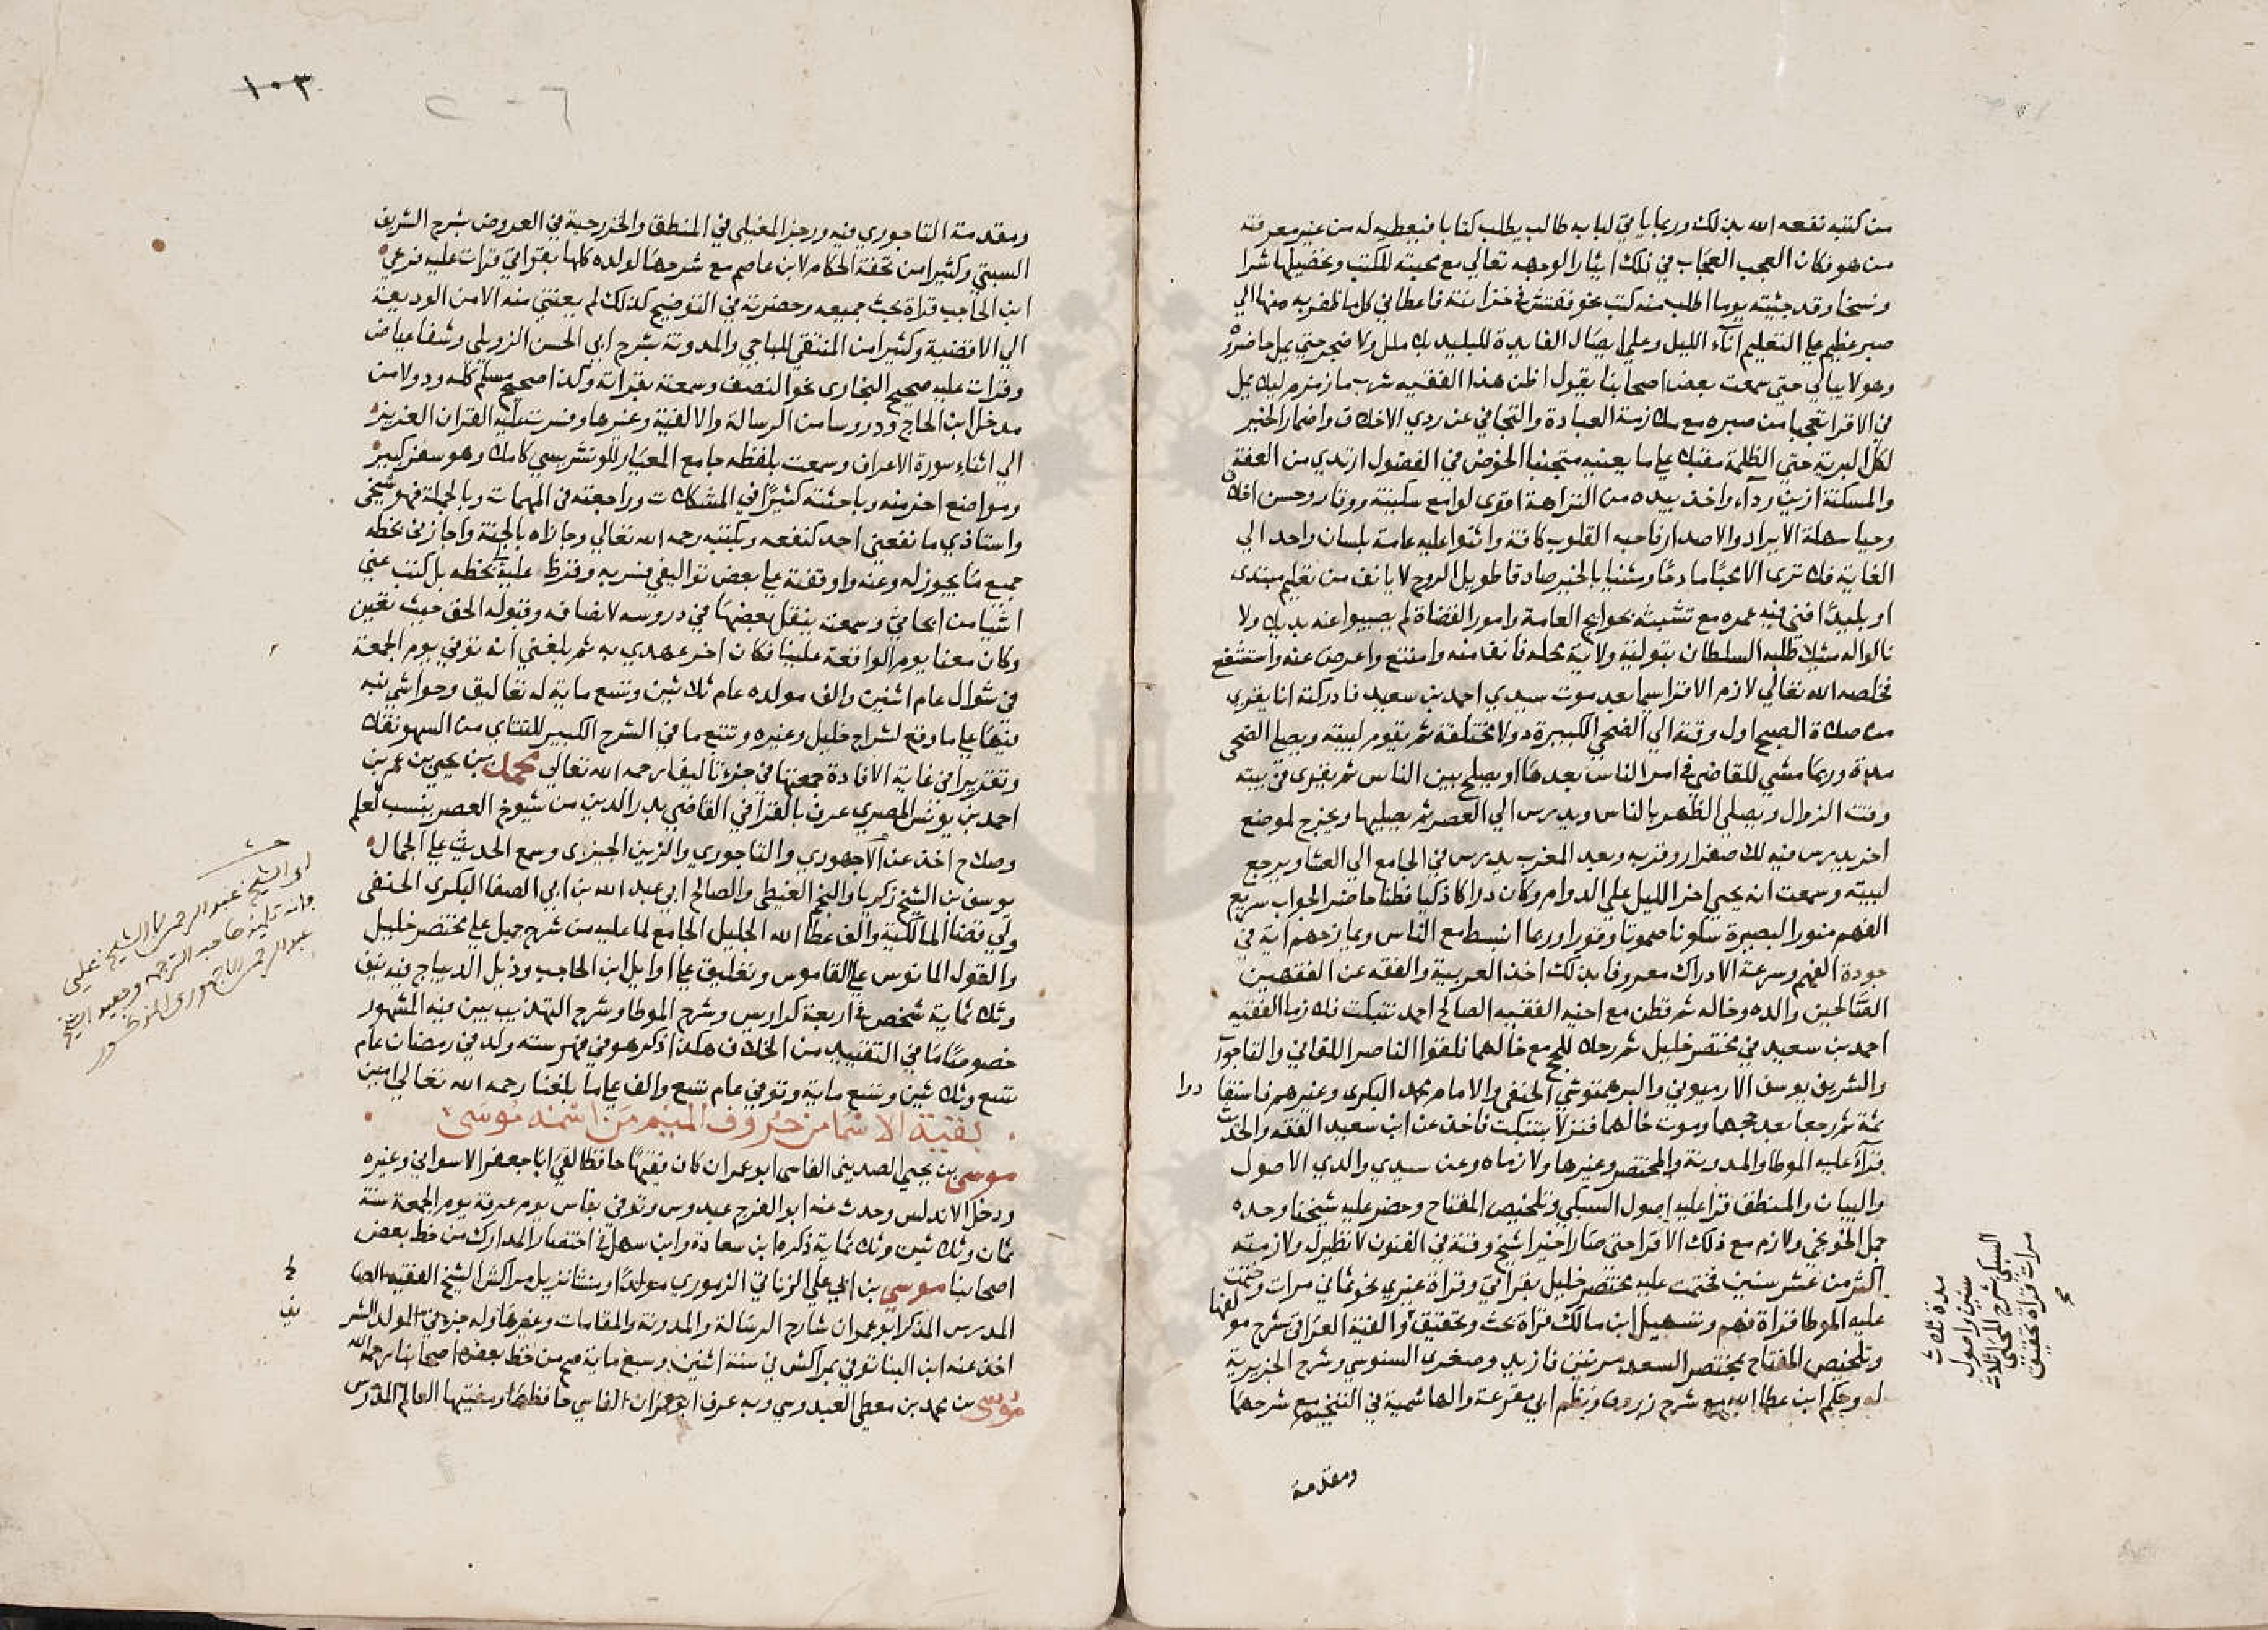 من كتبه نفعه الله بذلك وربما ياتي لبابه طالب يطلب كتابا فيعطيه له من غير معرفته
من هو فكان العجب العجاب في ذلك ايثارا لوجهه تعالي مع محبته للكتب وتحصيلها شرا
ونسخا وقد جيته يوما اطلب منه كتب نحو ففتش في خزانته فاعطاني كل ما ظفر به منها الي
صبر عظيم علي التعليم اناء الليل وعلي ايصال الفايدة للبليد بلا ملل ولا ضجر حتي يمل حاضروه
وهو لا يبالي حتي سمعت بعض اصحابنا يقول اظن هذا الفقيه شرب ماء زمزم ليلا يمل
في الاقرا تعجبا من صبره مع ملازمة العبادة والتجافي عن ردي الاخلاق واضمار الخير
لكل البرية حتي الظلمة مقبلا علي ما يعنيه متجنبا الخوض في الفضول ارتدي من العفة
والمسكنة ازين رداء واخذ بيده من النزاهة اقوي لواء مع سكينة ووقار وحسن اخلاق
وحيا سهلة الايراد والاصدار فاحبه القلوب كافة واثنوا عليه عامة بلسان واحد الي
الغاية فلا تري الا محبا مادحا ومثنيا بالخير صادقا طويل الروح لا يانف من تعليم مبتدي
او بليدا افني فيه عمره مع تشبثه بحوايج العامة وامور القضاة لم يصيبوا عنه بديلا ولا
نالوا له مثيلا طلبه السلطان بتولية ولاية محله فانف منه وامتنع واعرض عنه واستشفع
فخلصه الله تعالي لازم الاقرا سيما بعد موت سيدي احمد بن سعيد فادركته انا يقري
من صلاة الصبح اول وقته الي الضحي الكبير دولا مختلفة ثم يقوم لبيته ويصلي الضحي
مدة وربما مشي للقاضي في امر الناس بعدها او يصلح بين الناس ثم يقري في بيته
وقت الزوال ويصلي الظهر بالناس ويدرس الي العصر ثم يصليها ويخرج لموضع
اخر يدرس فيه للاصفرار وقربه وبعد المغرب يدرس في الجامع الي العشا ويرجع
لبيته وسمعت انه يحيي اخر الليل علي الدوام وكان دراكا ذكيا فطنا حاضر الجواب سريع
الفهم منور البصيرة سكوتا صموتا وقورا وربما انبسط مع الناس ويمازحهم اية في
جودة الفهم وسرعة الادراك معروفا بذلك اخذ العربية والفقه عن الفقهين
الصالحين والده وخاله ثم قطن مع اخيه الفقيه الصالح احمد تنبكت فلازما الفقيه
احمد بن سعيد في مختصر خليل ثم رحلا للحج مع خالهما فلقوا الناصر اللقاني والتاجوري
والشريف يوسف الارميوني والبرهمتوشي الحنفي والامام محمد البكري وغيرهم فاستفادوا
ثمة ثم رجعا بعد حجهما وموت خالهما فنزلا بتنبكت فاخذ عن ابن سعيد الفقه والحديث
قراء عليه الموطا والمدونة والمختصر وغيرها ولازماه وعن سيدي والدي الاصول
والبيان والمنطق قرا عليه اصول السبكي وتلخيص المفتاح وحضر عليه شيخنا وحده
جمل الخونجي ولازم مع ذلك الاقرا حتي صار اخيرا شيخ وقته في الفنون لا نظير له ولازمته
اكثر من عشر سنين فختمت عليه مختصر خليل بقراتي وقراة غيري نحو ثماني مرات وختمت
عليه الموطا قراة فهم وتسهيل ابن مالك قراة بحث وتحقيق والفية العراقي بشرح مولفها
وتلخيص المفتاح بمختصر السعد مرتين فازيد وصغري السنوسي وشرح الجزيرية
له وحكم ابن عطا الله مع شرح زروق ونظم ابي مقرعة والهاشمية في التنجيم مع شرحهما
ومقدمة
مدة ثلاث
سنين واصول
السبكي بشرح المحلي ثلاث
مرات قراة تحقيق
صح
١٠٣
ومقدمة التاجوري فيه ورجز المغيلي في المنطق والخزرجية في العروض بشرح الشريف
السبتي وكثيرا من تحفة الحكام لابن عاصم مع شرحها لولده كلها بقراتي قرات عليه فرعي
ابن الحاجب قراة بحث جميعه وحضرته في التوضيح كذلك لم يفتني منه الا من الوديعة
الي الاقضية وكثيرا من المنتقي للباجي والمدونة بشرح ابي الحسن الزرويلي وشفا عياض
وقرات عليه صحيح البخاري نحو النصف وسمعته بقراته وكذا صحيح مسلم كله ودولا من
مدخل ابن الحاج ودروسا من الرسالة والالفية وغيرها وفسرت عليه القران العزيز
الي اثناء سورة الاعراف وسمعت بلفظه جامع المعيار للونشريسي كاملا وهو سفر كبير
ومواضع اخر منه وباحثته كثيرا في المشكلات وراجعته في المهمات وبالجملة فهو شيخي
واستاذي ما نفعني احد كنفعه وبكتبه رحمه الله تعالي وجازاه بالجنة واجازني بخطه
جميع ما يجوز له وعنه واوقفته علي بعض تواليفي فسر به وقرظ عليه بخطه بل كتب عني
اشيا من ابحاثي وسمعته ينقل بعضها في دروسه لانصافه وقبوله الحق حيث تعين
وكان معنا يوم الواقعة علينا فكان اخر عهدي به ثم بلغني انه توفي يوم الجمعة
في شوال عام اثنين والف مولده عام ثلاثين وتسع ماية له تعاليق وحواشي نبه
فيها علي ما وقع لشراح خليل وغيره وتتبع ما في الشرح الكبير للتتاي من السهو نقلا
وتقريرا في غاية الافادة جمعتها في جزء تاليفا رحمه الله تعالي محمد بن يحيي بن عمر بن
احمد بن يونس المصري عرف بالقرافي القاضي بدر الدين من شيوخ العصر ينسب لعلم
وصلاح اخذ عن الاجهوري والتاجوري والزين الجيزي وسمع الحديث علي الجمال
يوسف بن الشيخ زكريا والنجم الغيطي والصالح ابي عبد الله بن ابي الصفا البكري الحنفي
ولي قضا المالكية والف عطا الله الجليل الجامع لما عليه من شرح جميل علي مختصر خليل
والقول المانوس علي القاموس وتعليق علي اوايل ابن الحاجب وذيل الديباج فيه نيف
وثلاثماية شخص في اربعة كراريس وشرح الموطا وشرح التهذيب يبين فيه المشهور
خصوصا ما في التقييد من الخلاف هكذا ذكر هو في فهرسته ولد في رمضان عام
تسع وثلاثين وتسع ماية وتوفي عام تسع والف علي ما بلغنا رحمه الله تعالي امين
بقية الاسما من حروف الميم من اسمه موسي
موسي بن يحيي الصديني الفاسي ابو عمران كان فقيها حافظا لقي ابا جعفر الاسواني وغيره
ودخل الاندلس وحدث عنه ابو الفرج عبدوس وتوفي بفاس يوم عرفة يوم الجمعة سنة
ثمان وثلاثين وثلاثماية ذكره ابن سعادة وابن سهل في اختصار المدارك من خط بعض
اصحابنا موسي بن ابي علي الزناتي الزموري مولدا ومنشا نزيل مراكش الشيخ الفقيه الصا
المدرس المذكر ابو عمران شارح الرسالة والمدونة والمقامات وغيرها وله جزء في المولد الشريف
اخذ عنه ابن البنا توفي بمراكش في سنة اثنين وسبع ماية صح من خط بعض اصحابنا رحمه الله
موسي بن محمد بن معطي العبدوسي وبه عرف ابو عمران الفاسي حافظها ومفتيها العالم المدرس
عبد الرحمن الاجهوري